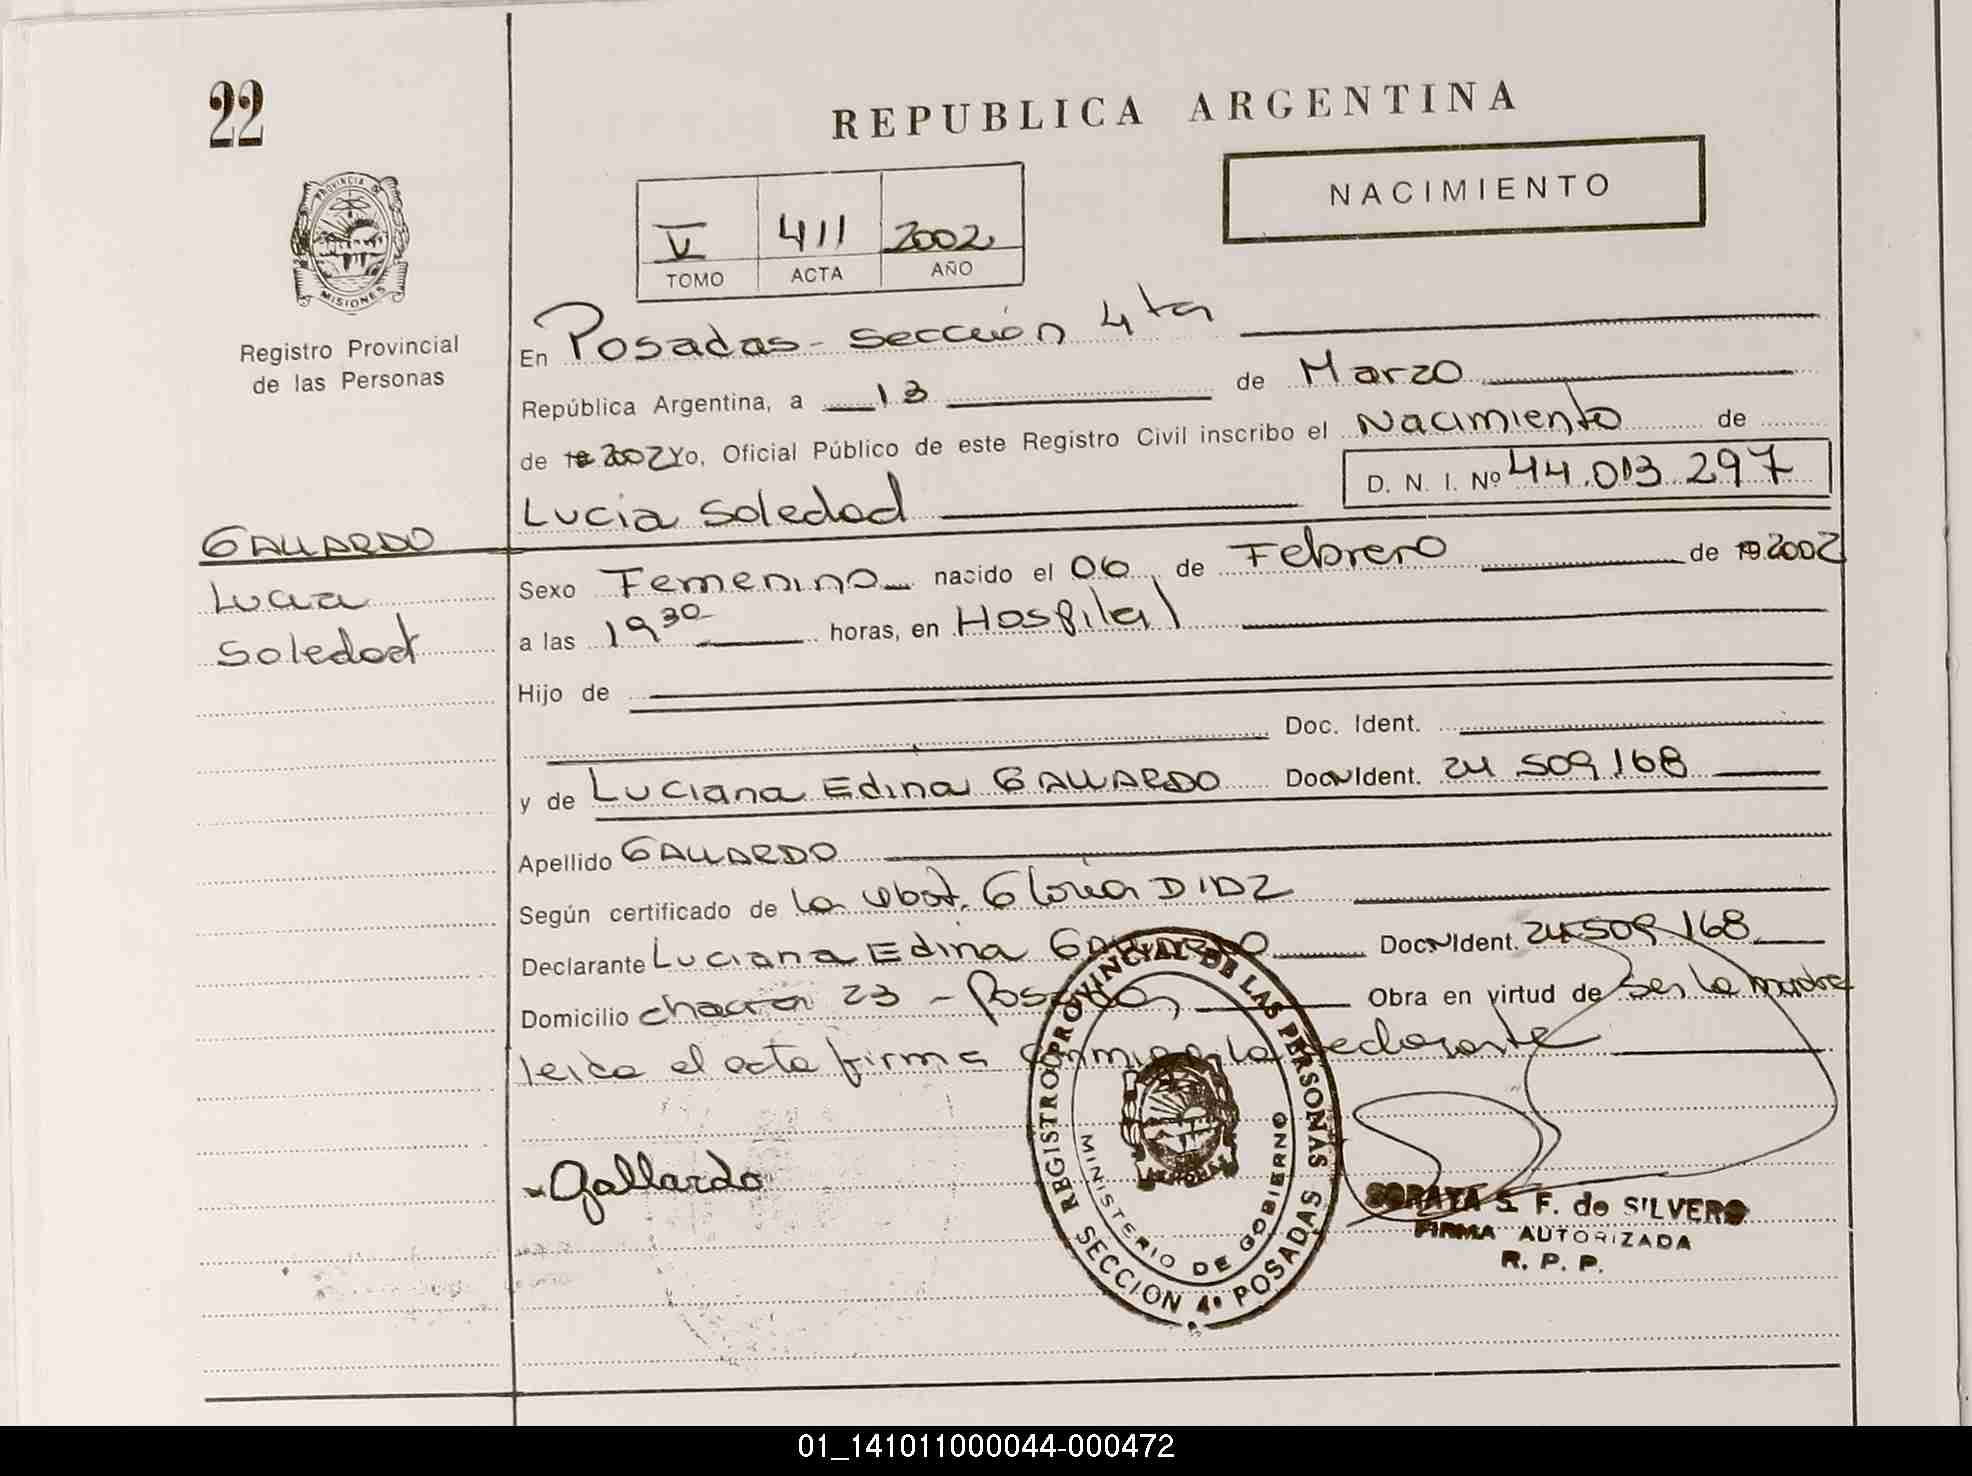 22
REPUBLICA ARGENTINA
NACIMIENTO
V 411 2002
TOMO ACTA AÑO
PROVINCIA DE
MISIONES
Registro Provincial
de las Personas
En Posadas - sección 4ta
República Argentina, a 13 de Marzo
de 19 2002 Yo, Oficial Público de este Registro Civil inscribo el Nacimiento de
D. N. I. Nº 44.013.297
Lucia Soledad
GALLARDO
Lucia
Soledad
Sexo Femenino nacido el 06 de Febrero de 19 2002
a las 19 30 horas, en Hospital
Hijo de
Doc. Ident.
y de Luciana Edina GALLARDO Doc. Ident. 24 509 168
Apellido GALLARDO
Según certificado de la obst. Gloria DIAZ
Declarante Luciana Edina GALLARDO Doc. Ident. 24 509 168
Domicilio chacra 23 - Posadas Obra en virtud de ser la madre
leida el acta firma conmigo la declarante
Gallardo
REGISTRO PROVINCIAL DE LAS PERSONAS
MINISTERIO DE GOBIERNO
SECCION 4ª POSADAS
SORAYA S. F. de SILVERO
FIRMA AUTORIZADA
R. P. P.
01_141011000044-000472